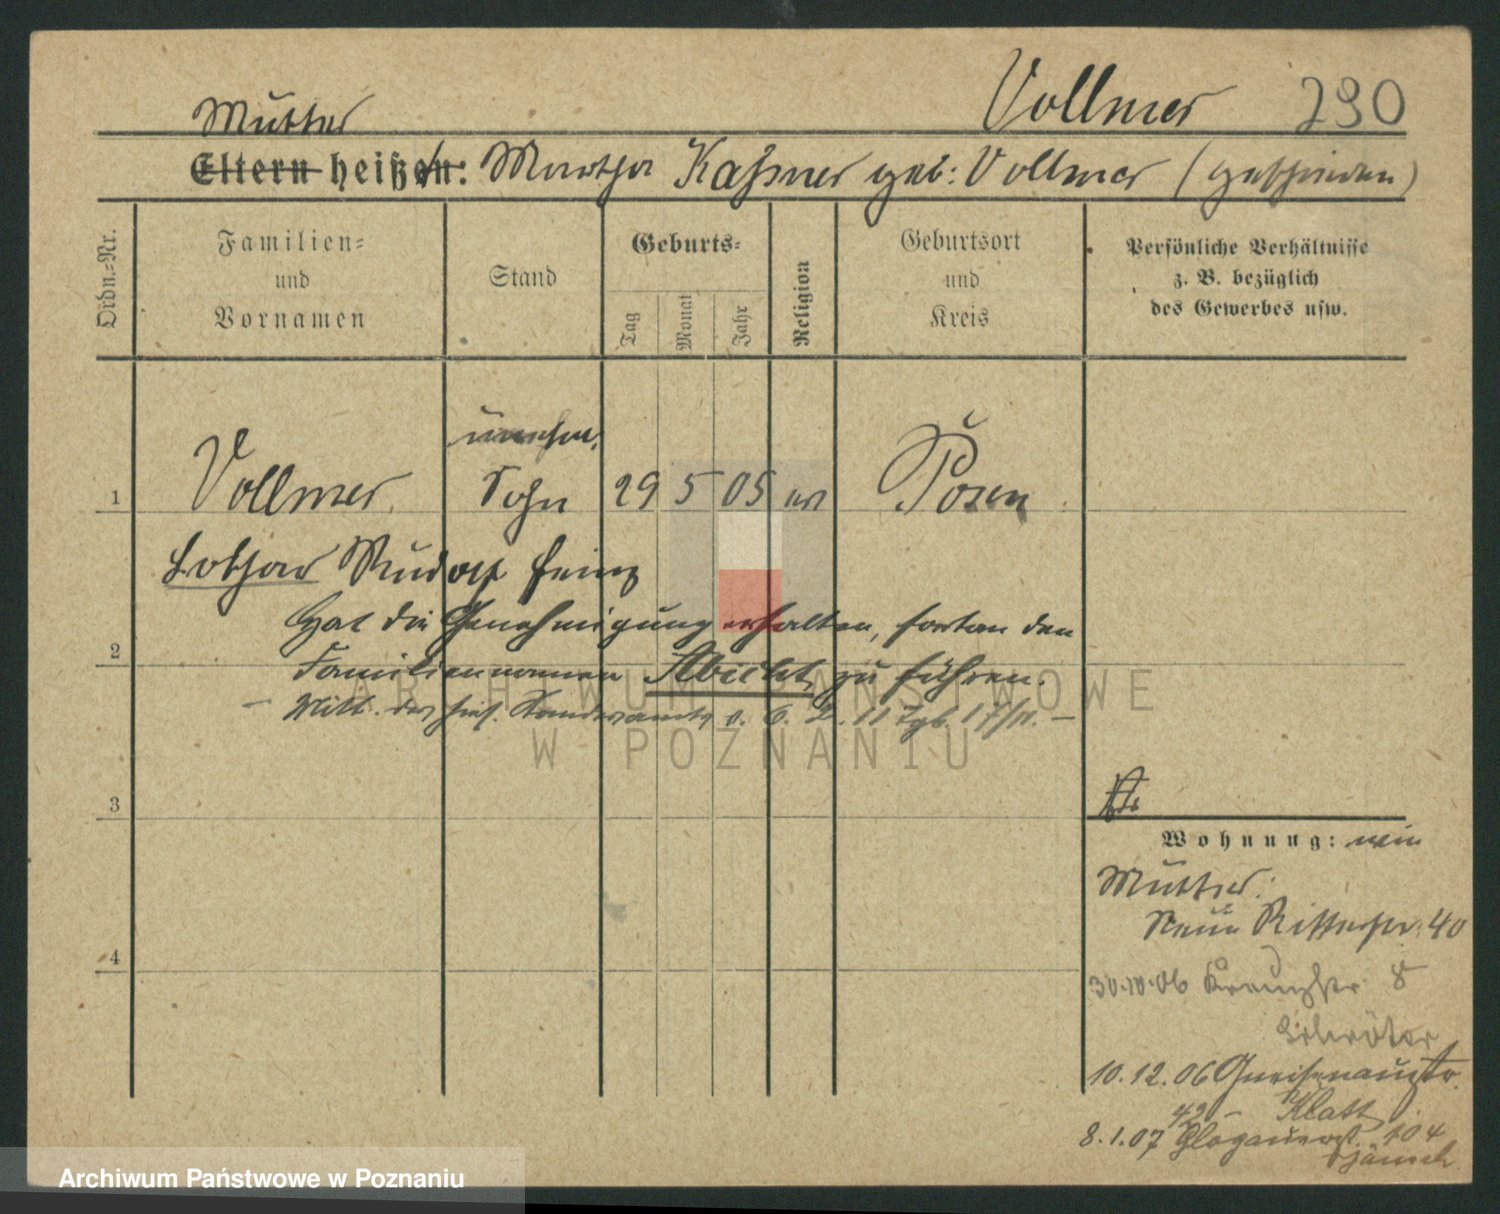 Vollmer 290
Mutter
Eltern heißen: Martha Kaßner geb: Vollmer (geschieden)
Ordn.-Nr.
Familien-
und
Vornamen
Stand
Geburts-
Tag
Monat
Jahr
Religion
Geburtsort
und
Kreis
Persönliche Verhältnisse
z. B. bezüglich
des Gewerbes usw.
unehel.
1 Vollmer Sohn 29 5 05 ev Posen
Lothar Rudolf Heinz
Hat die Genehmigung erhalten, fortan den
2
Familiennamen Abicht zu führen.
– Mitt. des hies. Standesamts v. 6. 2. 11 Tgb. 17/11. –
ARCHIWUM PAŃSTWOWE
W POZNANIU
3
Wohnung: wie
Mutter:
Neue Ritterstr. 40
4
30.10.06 Kreuzstr. 8
Schröter
10.12.06 Gneisenaustr.
42 – Klatt
8.1.07 Glogauerst. 104
Jänsch
Archiwum Państwowe w Poznaniu